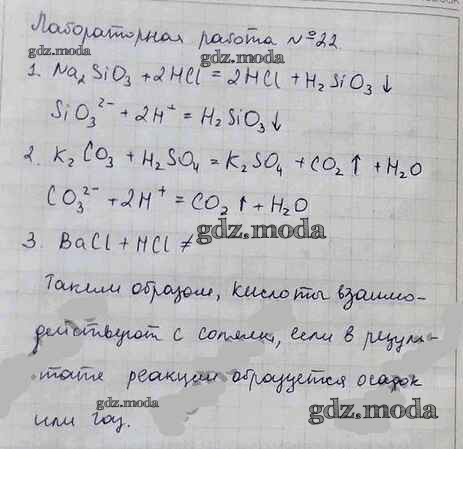 Лабораторная работа №22
gdz.moda gdz.moda
1. Na₂SiO₃ + 2HCl = 2HCl + H₂SiO₃↓
SiO₃²⁻ + 2H⁺ = H₂SiO₃↓
2. K₂CO₃ + H₂SO₄ = K₂SO₄ + CO₂↑ + H₂O
CO₃²⁻ + 2H⁺ = CO₂↑ + H₂O
gdz.moda
3. BaCl + HCl ≠
Таким образом, кислоты взаимо-
действуют с солями, если в резуль-
тате реакции образуется осадок
gdz.moda gdz.moda
или газ.
gdz.moda